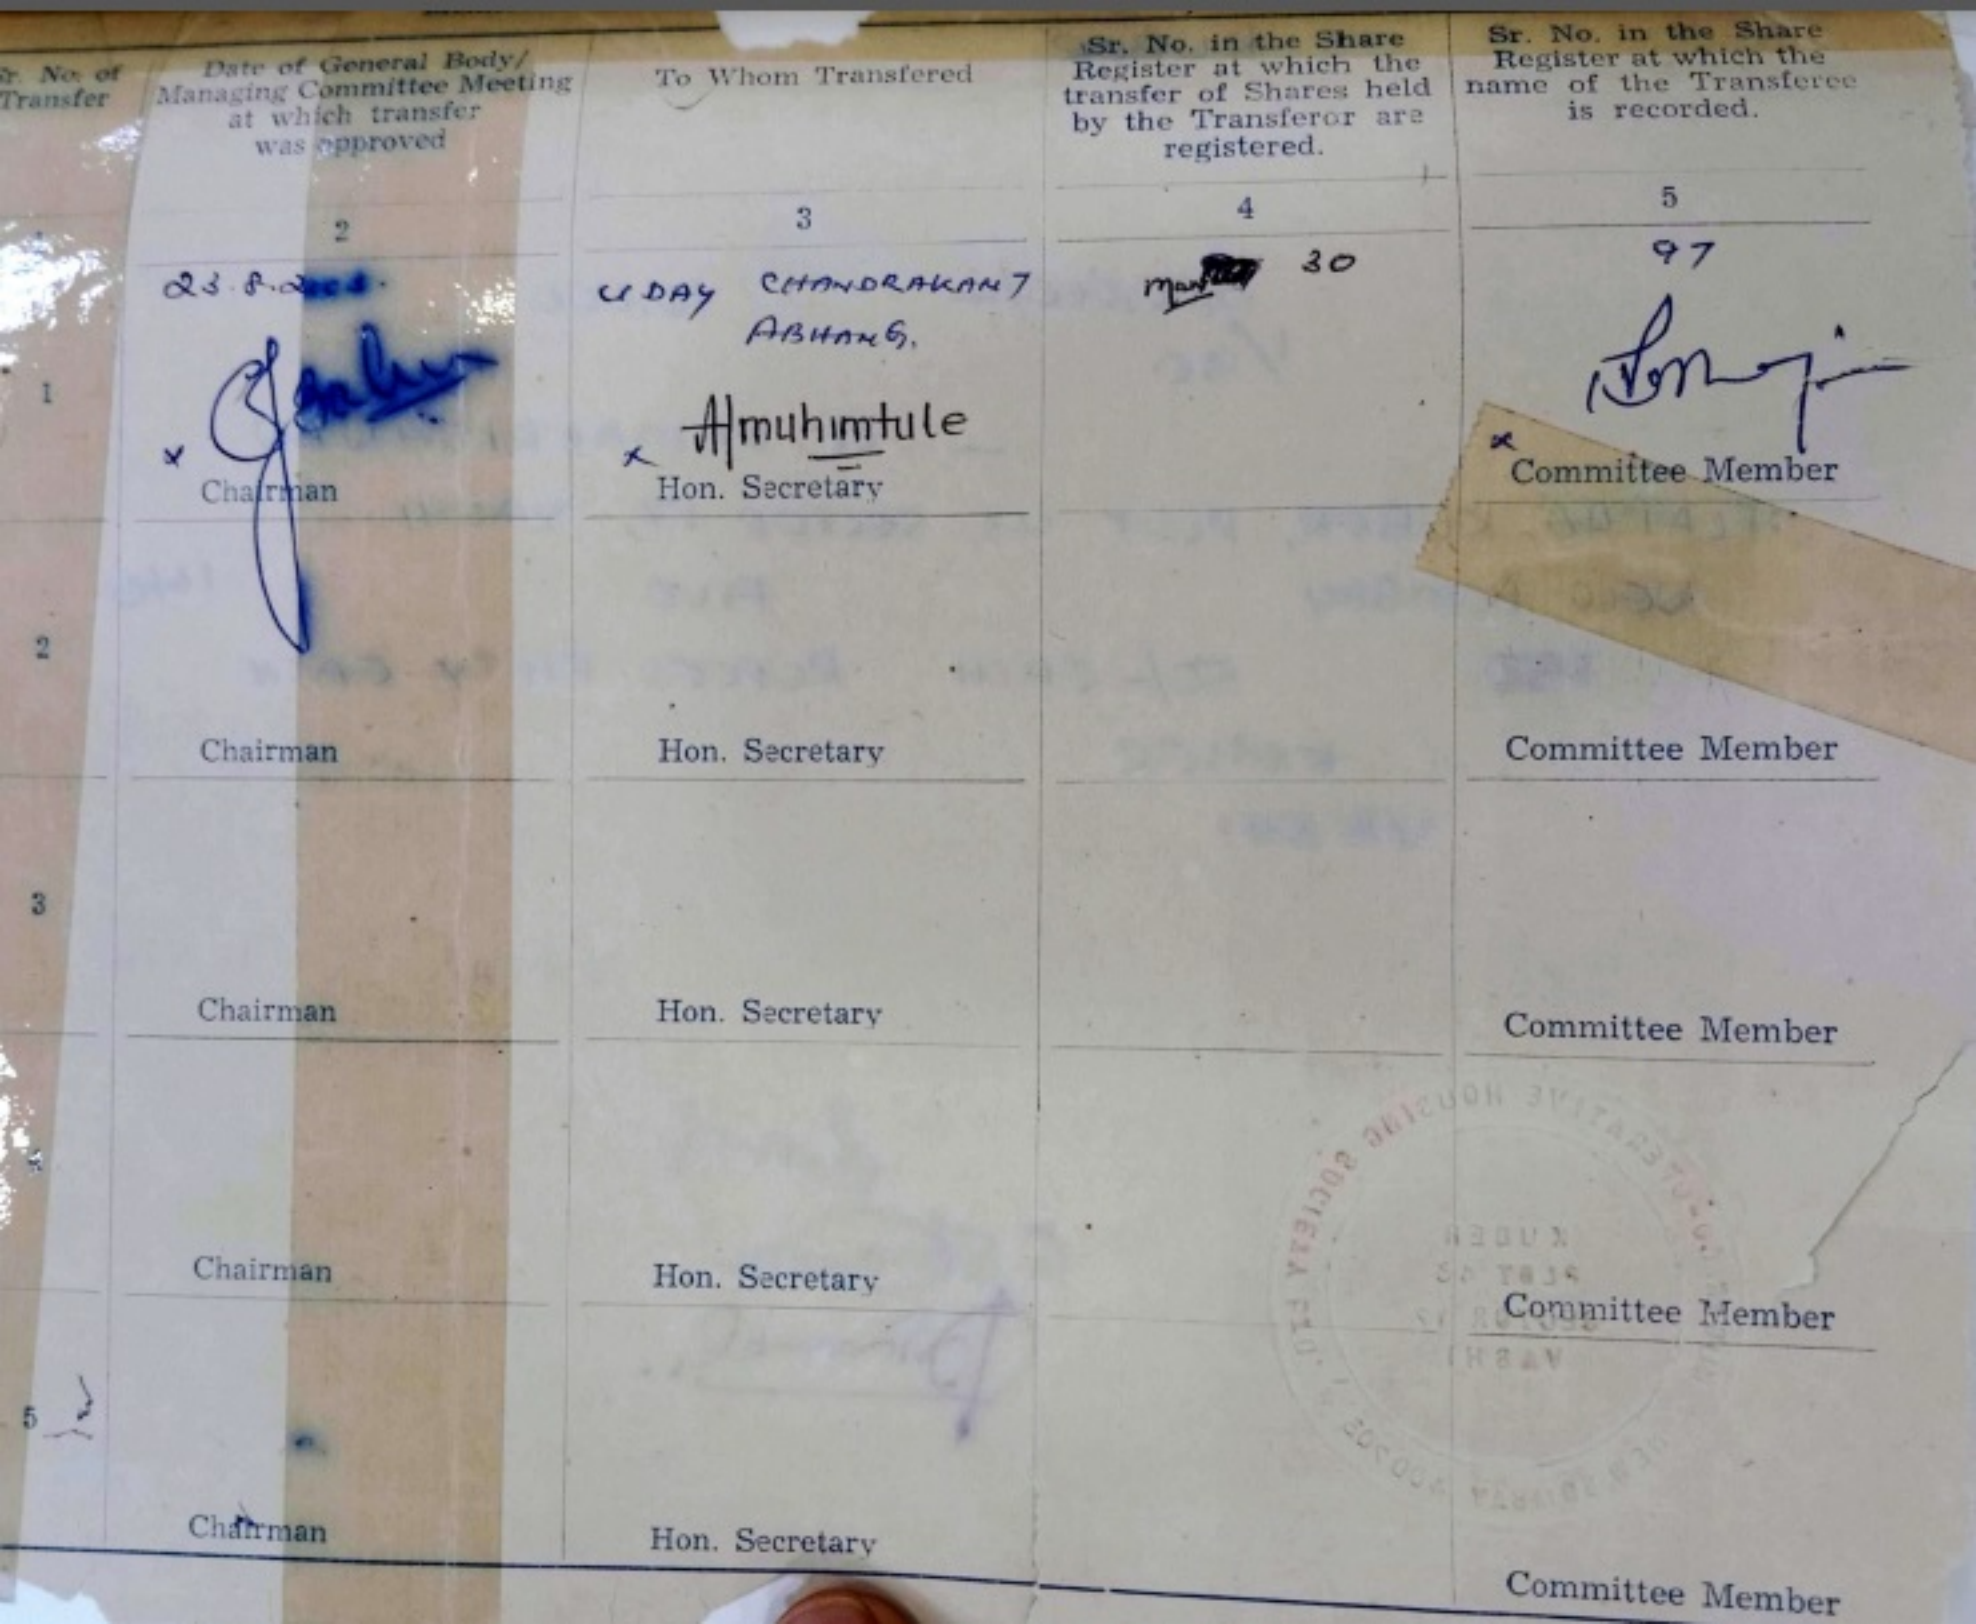 Sr. No. of
Transfer
Date of General Body/
Managing Committee Meeting
at which transfer
was approved
To Whom Transfered
Sr. No. in the Share
Register at which the
transfer of Shares held
by the Transferor are
registered.
Sr. No. in the Share
Register at which the
name of the Transferee
is recorded.
2
3
4
5
1
23.8.
UDAY CHANDRAKANT
ABHANG.
30
97
x
Almuhimtule
x
x
Chairman
Hon. Secretary
Committee Member
2
Chairman
Hon. Secretary
Committee Member
3
Chairman
Hon. Secretary
Committee Member
Chairman
Hon. Secretary
Committee Member
5
Chairman
Hon. Secretary
Committee Member
HOUSING SOCIETY LTD.
KUBER
VASHI